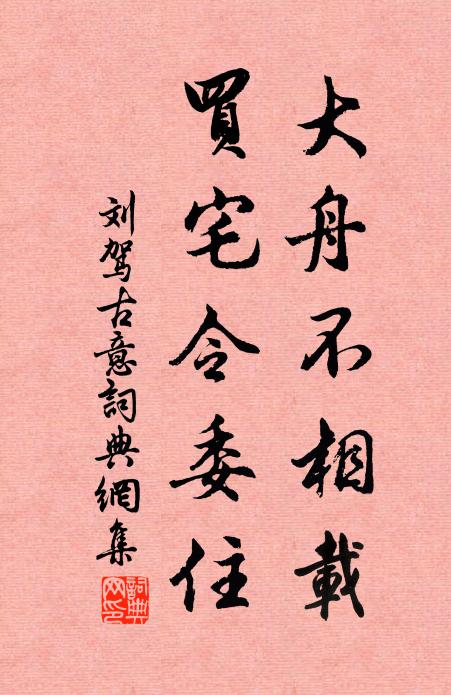 大舟不相載
買宅令委住
刘驾古意詞典網集
詞典網印